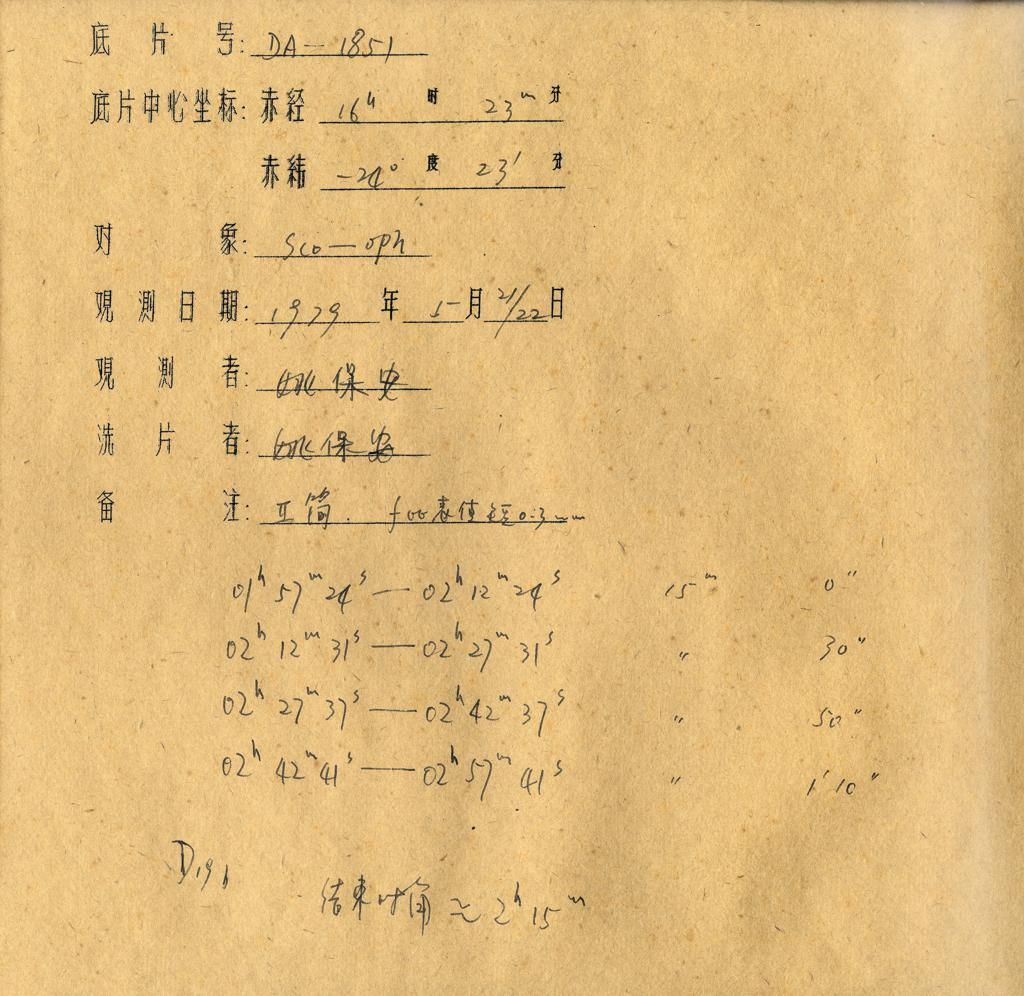 底片号: DA-1851
底片中心坐标: 赤经 16h 时 23m 分
赤纬 -24° 度 23′ 分
对象: Sco-oph
观测日期: 1979 年 5 月 21/22 日
观测者: 姚保安
洗片者: 姚保安
备注: 互简. 表值 0.3mm
01h 57m 24s — 02h 12m 24s 15m 0"
02h 12m 31s — 02h 27m 31s " 30"
02h 27m 37s — 02h 42m 37s " 50"
02h 42m 41s — 02h 57m 41s " 1′10"
结束时角 ≈ 2h 15m